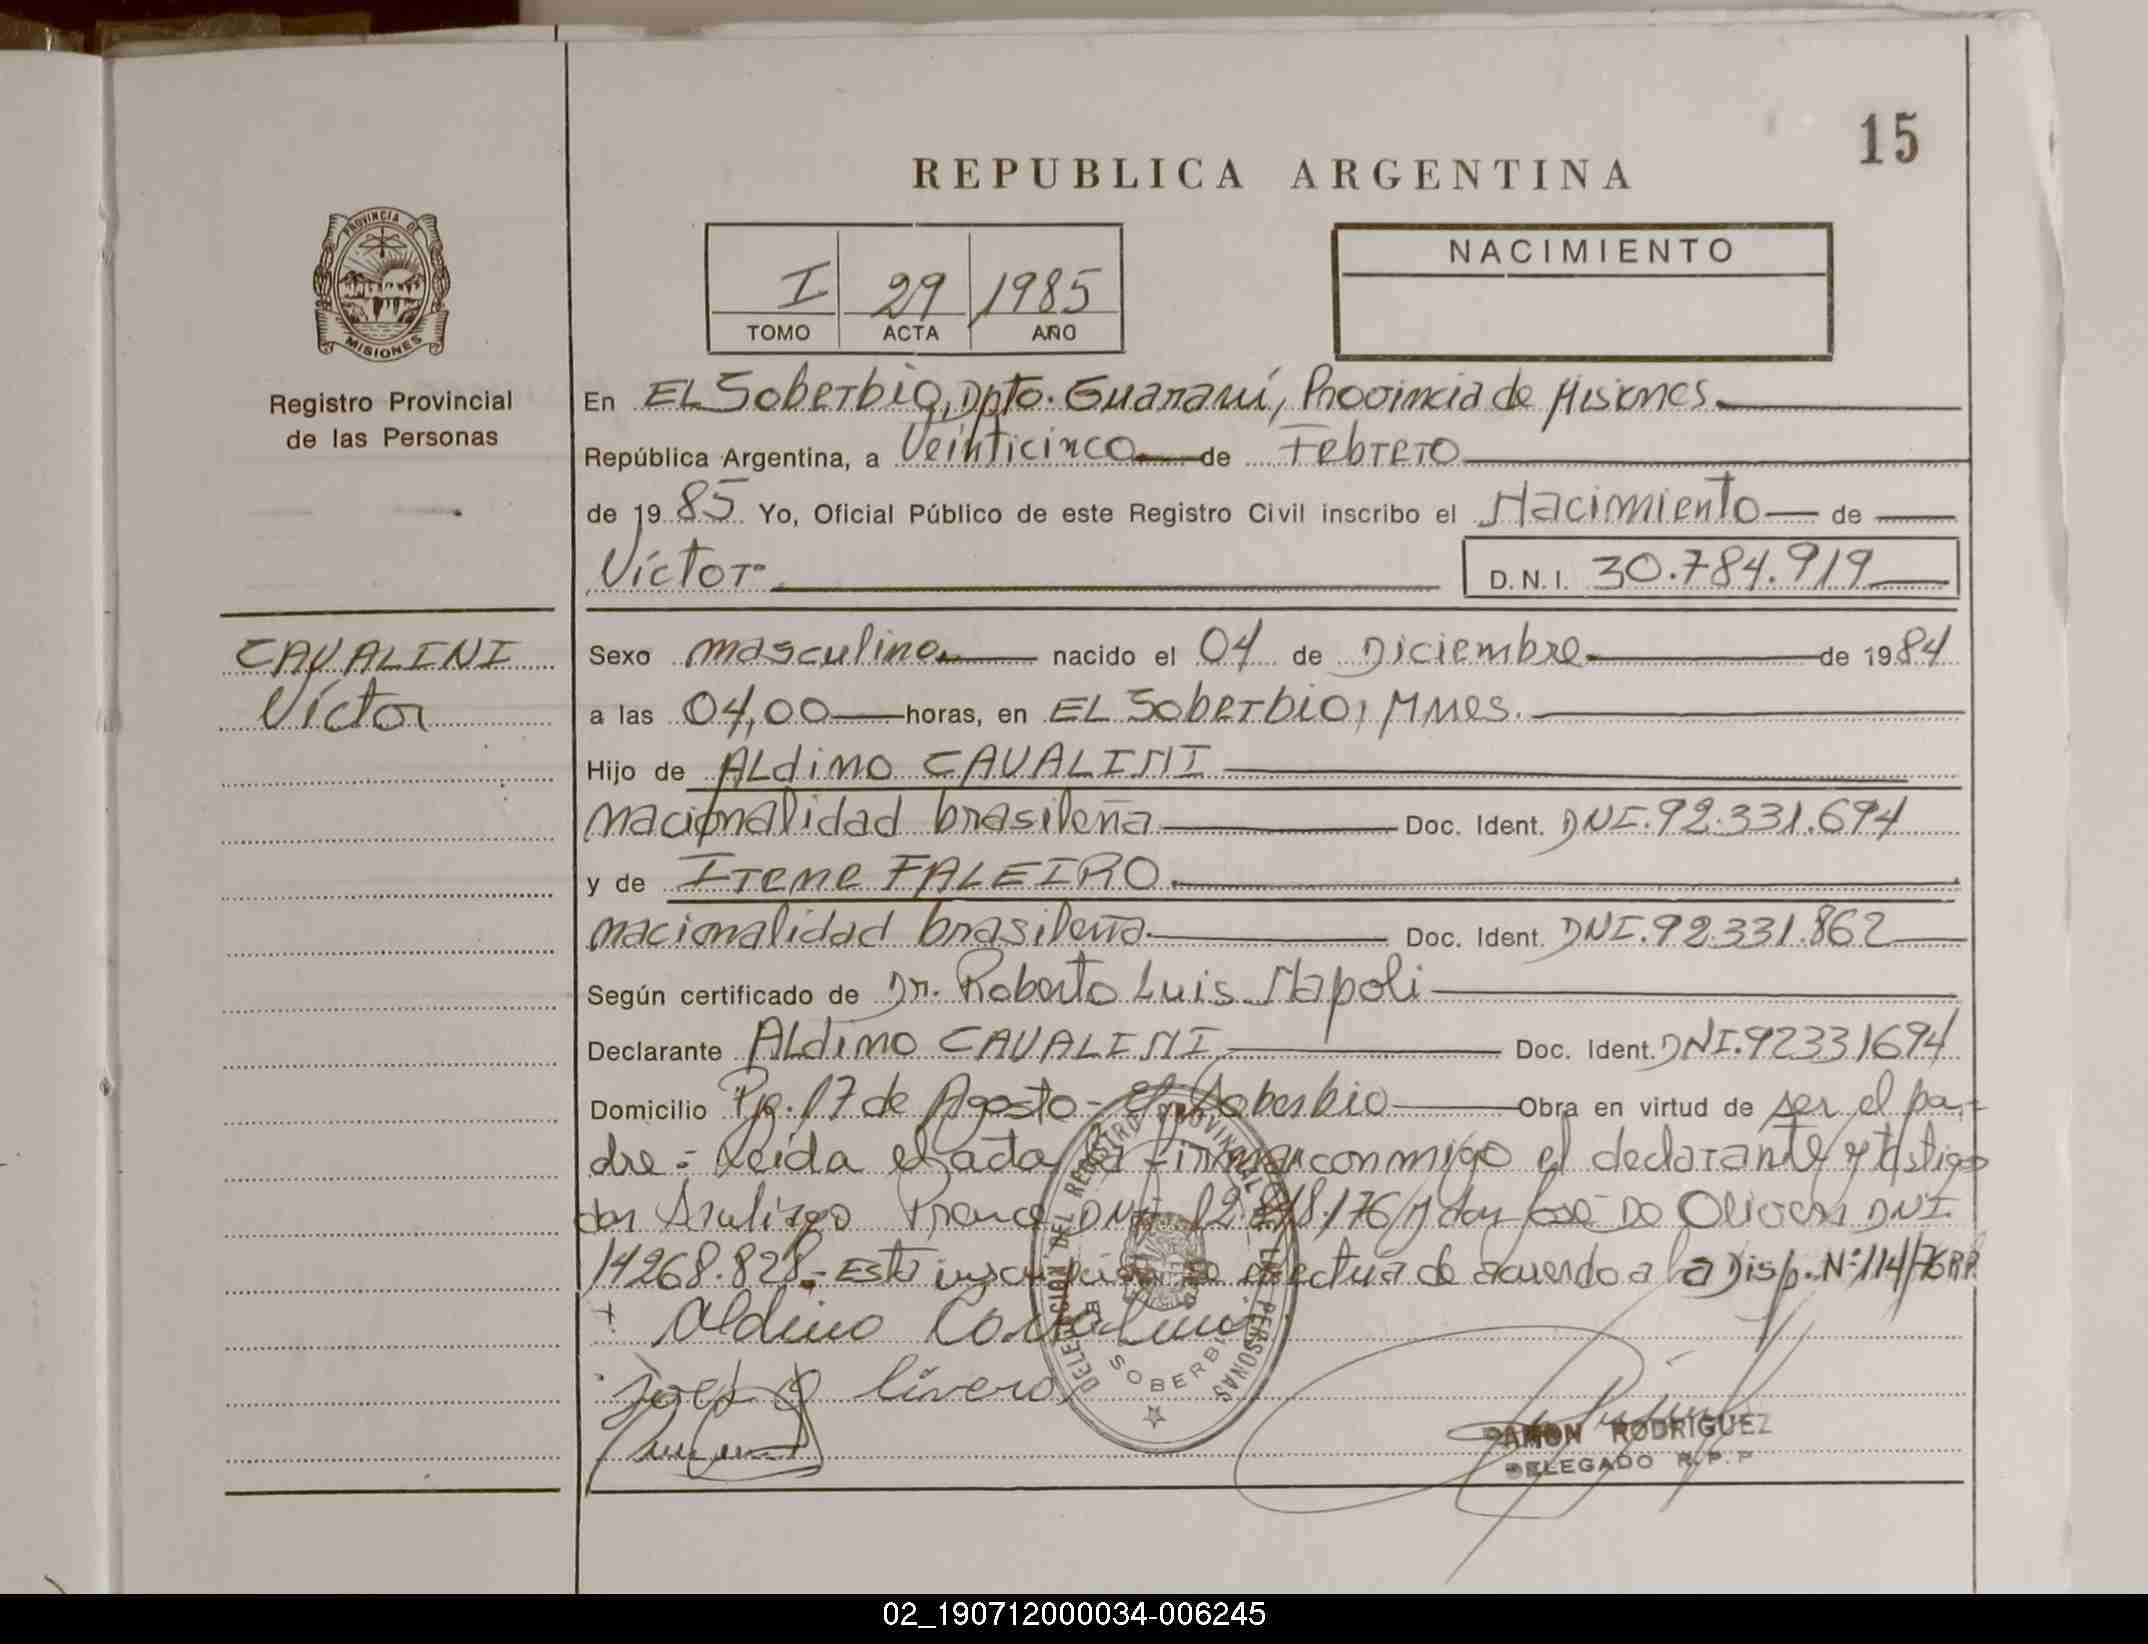 15
REPUBLICA ARGENTINA
PROVINCIA DE
MISIONES
NACIMIENTO
I 29 1985
TOMO ACTA AÑO
Registro Provincial
de las Personas
En EL Soberbio, Dpto. Guaraní, Provincia de Misiones
República Argentina, a Veinticinco de Febrero
de 1985 Yo, Oficial Público de este Registro Civil inscribo el Nacimiento de
Víctor D.N.I. 30.784.919
CAVALINI
Víctor
Sexo masculino nacido el 04 de Diciembre de 1984
a las 04,00 horas, en EL Soberbio, Mnes.
Hijo de ALdino CAVALINI
nacionalidad brasileña Doc. Ident. DNI.92.331.694
y de Irene FALEIRO
nacionalidad brasileña Doc. Ident. DNI.92331.862
Según certificado de Dr. Roberto Luis Napoli
Declarante ALdino CAVALINI Doc. Ident. DNI.92331694
Domicilio Pje. 17 de Agosto - El Soberbio Obra en virtud de ser el pa-
dre = Leida el acta la firman conmigo el declarante y testigos
don DNI 12.818.176 y don José Do Olivera DNI
14268.828.- Esta inscripción se efectua de acuerdo a la Disp. N° 114/76 R.P.
Aldino Cavalini
DELEGACION DEL REGISTRO PROVINCIAL DE LAS PERSONAS
EL SOBERBIO
RAMON RODRIGUEZ
DELEGADO R.P.P
02_190712000034-006245